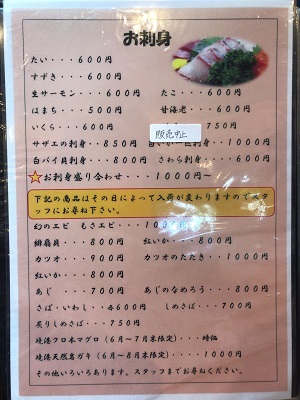 お刺身
たい・・・６００円
すずき・・・６００円
生サーモン・・・６００円　たこ・・・６００円
はまち・・・５００円　甘海老・・・
いくら・・・６００円　・７５０円
販売中止
サザエの刺身・・８５０円　１０００円
白バイ貝刺身・・８００円　さわら刺身・・・６００円
☆お刺身盛り合わせ・・・１０００円～
下記の商品はその日によって入荷が変わりますのでスタッフにお尋ね下さい。
幻のエビ　もさエビ・・・１０００円
緋扇貝・・・８００円　紅いか・・・８００円
カツオ・・・９００円　カツオのたたき・・１０００円
紅いか・・・８００円
あじ・・・７００円　あじのなめろう・・・８００円
さば・いわし・・各６００円　しめさば・・・７００円
炙りしめさば・・・７５０円
境港クロ本マグロ（６月～７月末限定）・・・時価
境港天然岩ガキ（６月～８月末限定）・・・・１０００円
その他いろいろあります。スタッフまでお尋ねください。